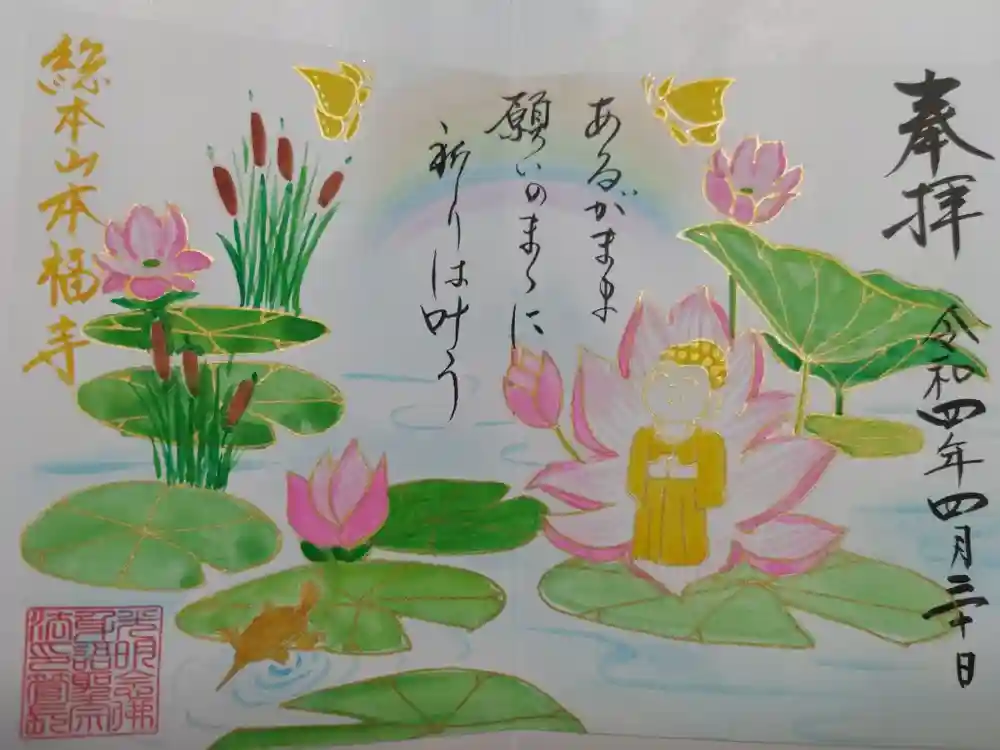 奉拝
令和四年四月三十日
あるがまま
願いのまゝに
祈りは叶う
総本山本福寺